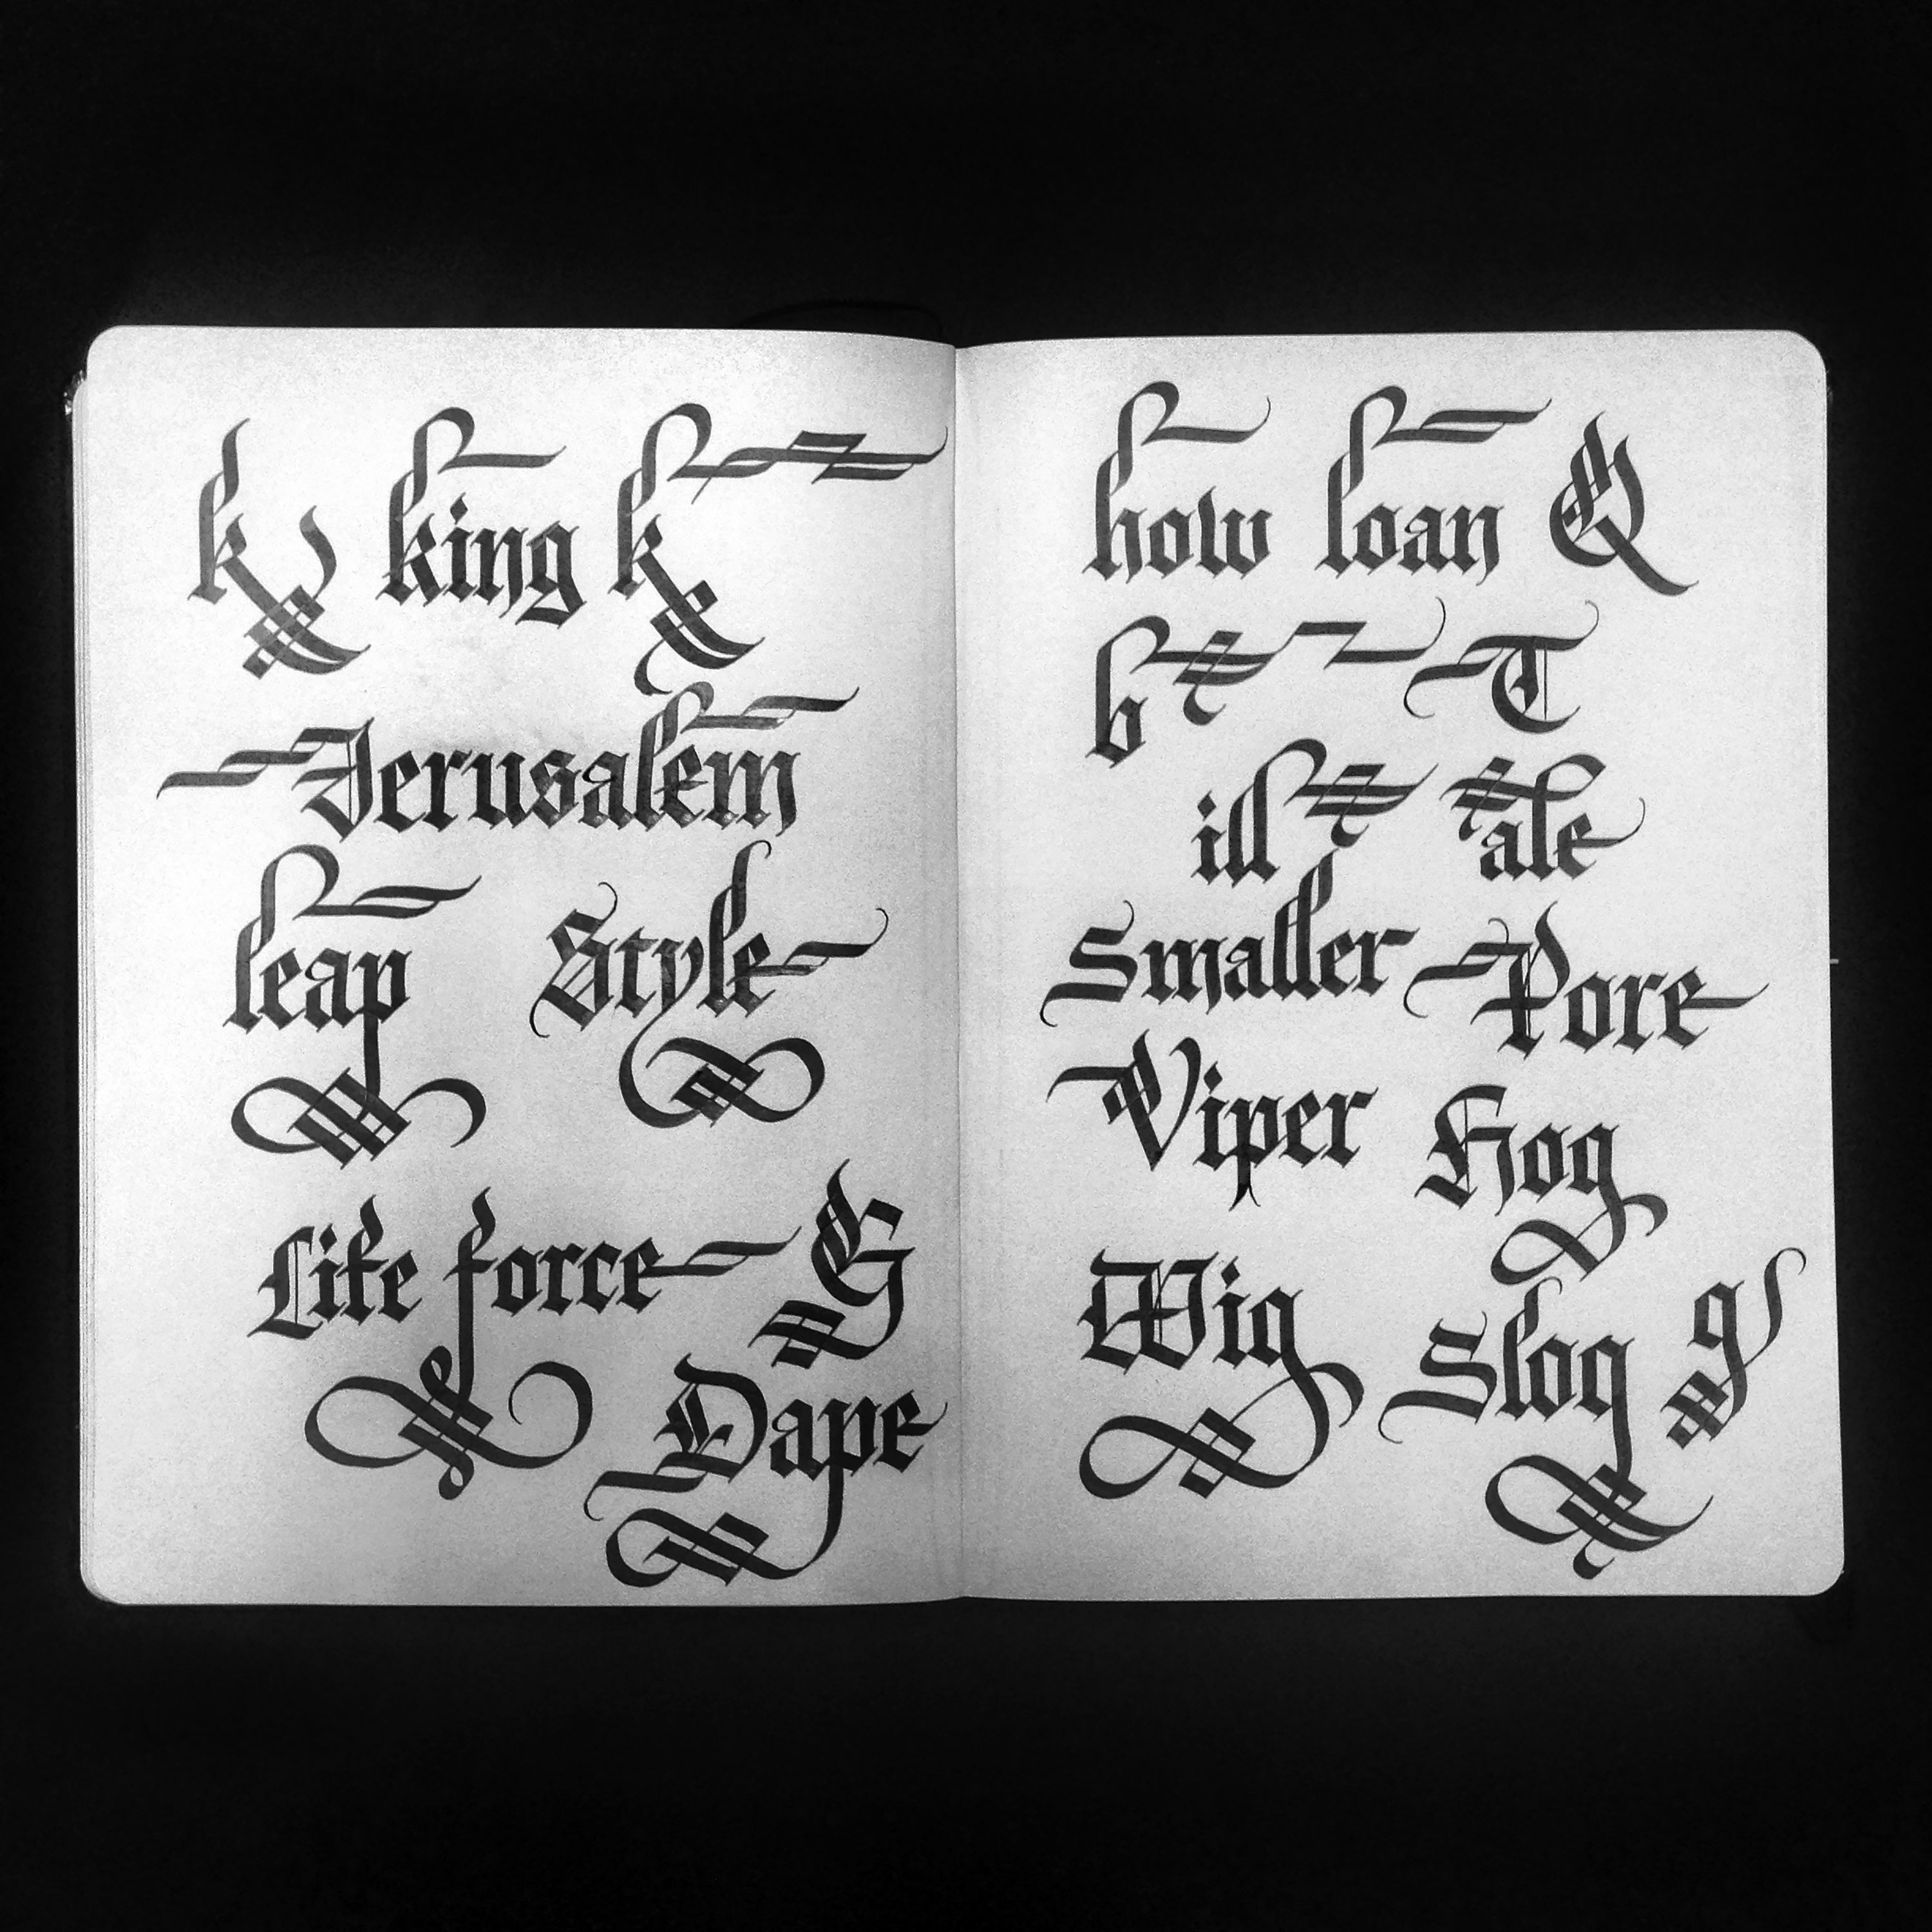 k king k
Jerusalem
leap Style
Life force G
Dape
how loan Q
b T
ill ale
Smaller Pore
Viper Hog
Wig Slog g